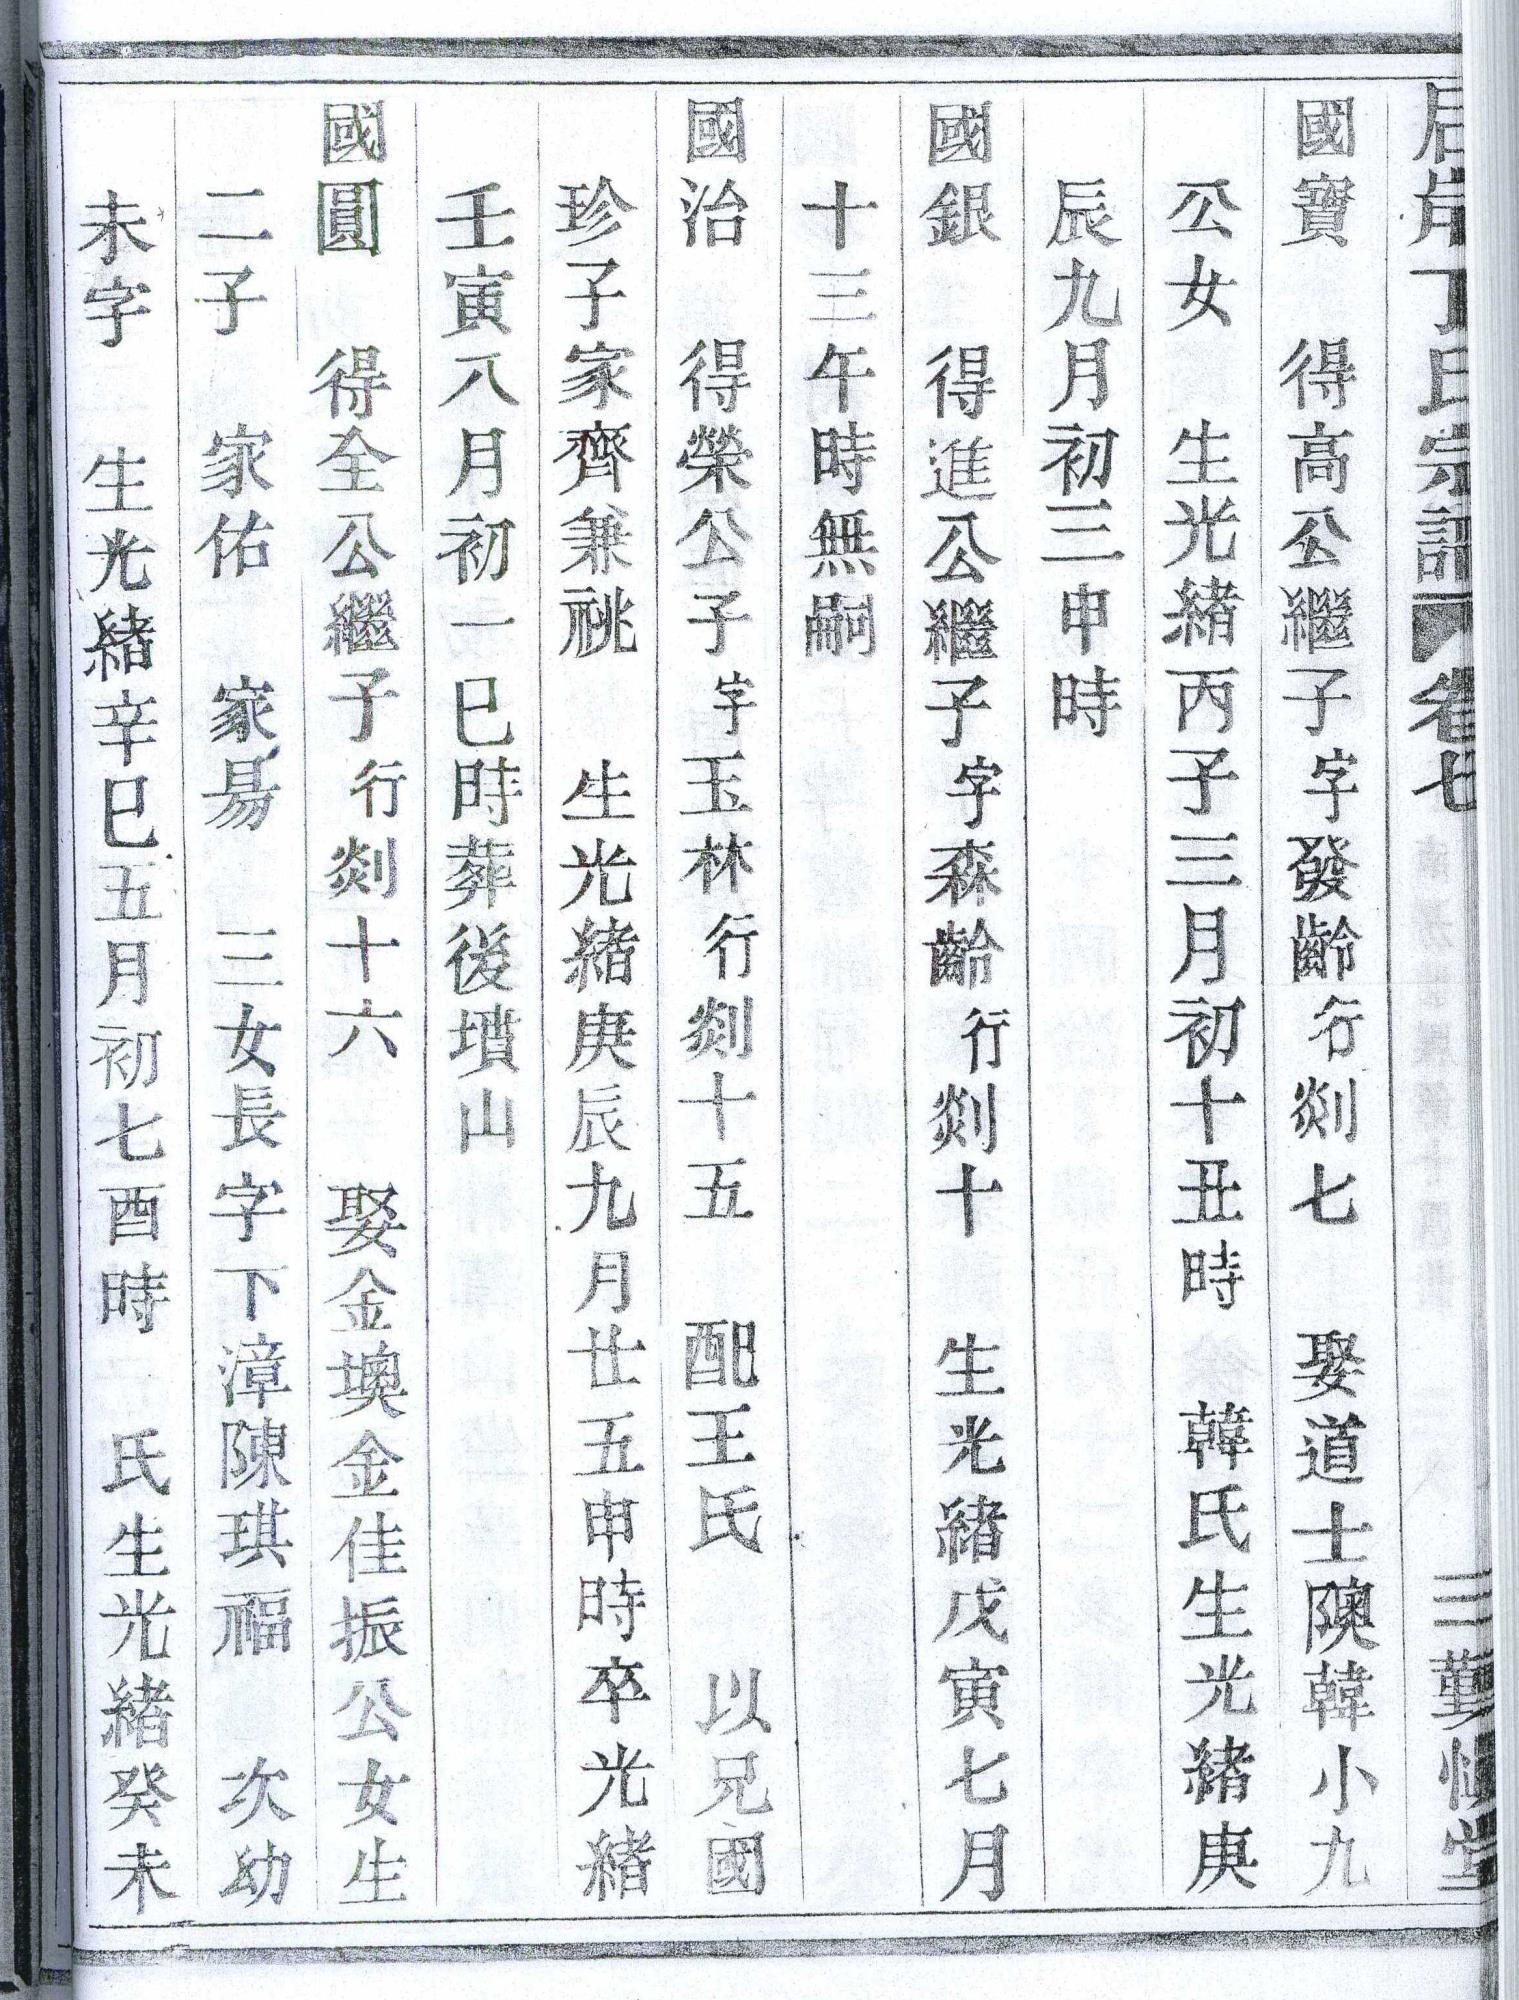 丁氏宗譜 卷七 三 勤慎堂
國寶 得高公繼子字發齡行剡七 娶道士隩韓小九
公女 生光緒丙子三月初十丑時 韓氏生光緒庚
辰九月初三申時
國銀 得進公繼子字森齡行剡十 生光緒戊寅七月
十三午時無嗣
國治 得榮公子字玉林行剡十五 配王氏 以兄國
珍子家齊兼祧 生光緒庚辰九月廿五申時卒光緒
壬寅八月初一巳時葬後墳山
國圓 得全公繼子行剡十六 娶金墺金佳振公女生
二子 家佑 家昜 三女長字下漳陳琪福 次幼
未字 生光緒辛巳五月初七酉時 氏生光緒癸未